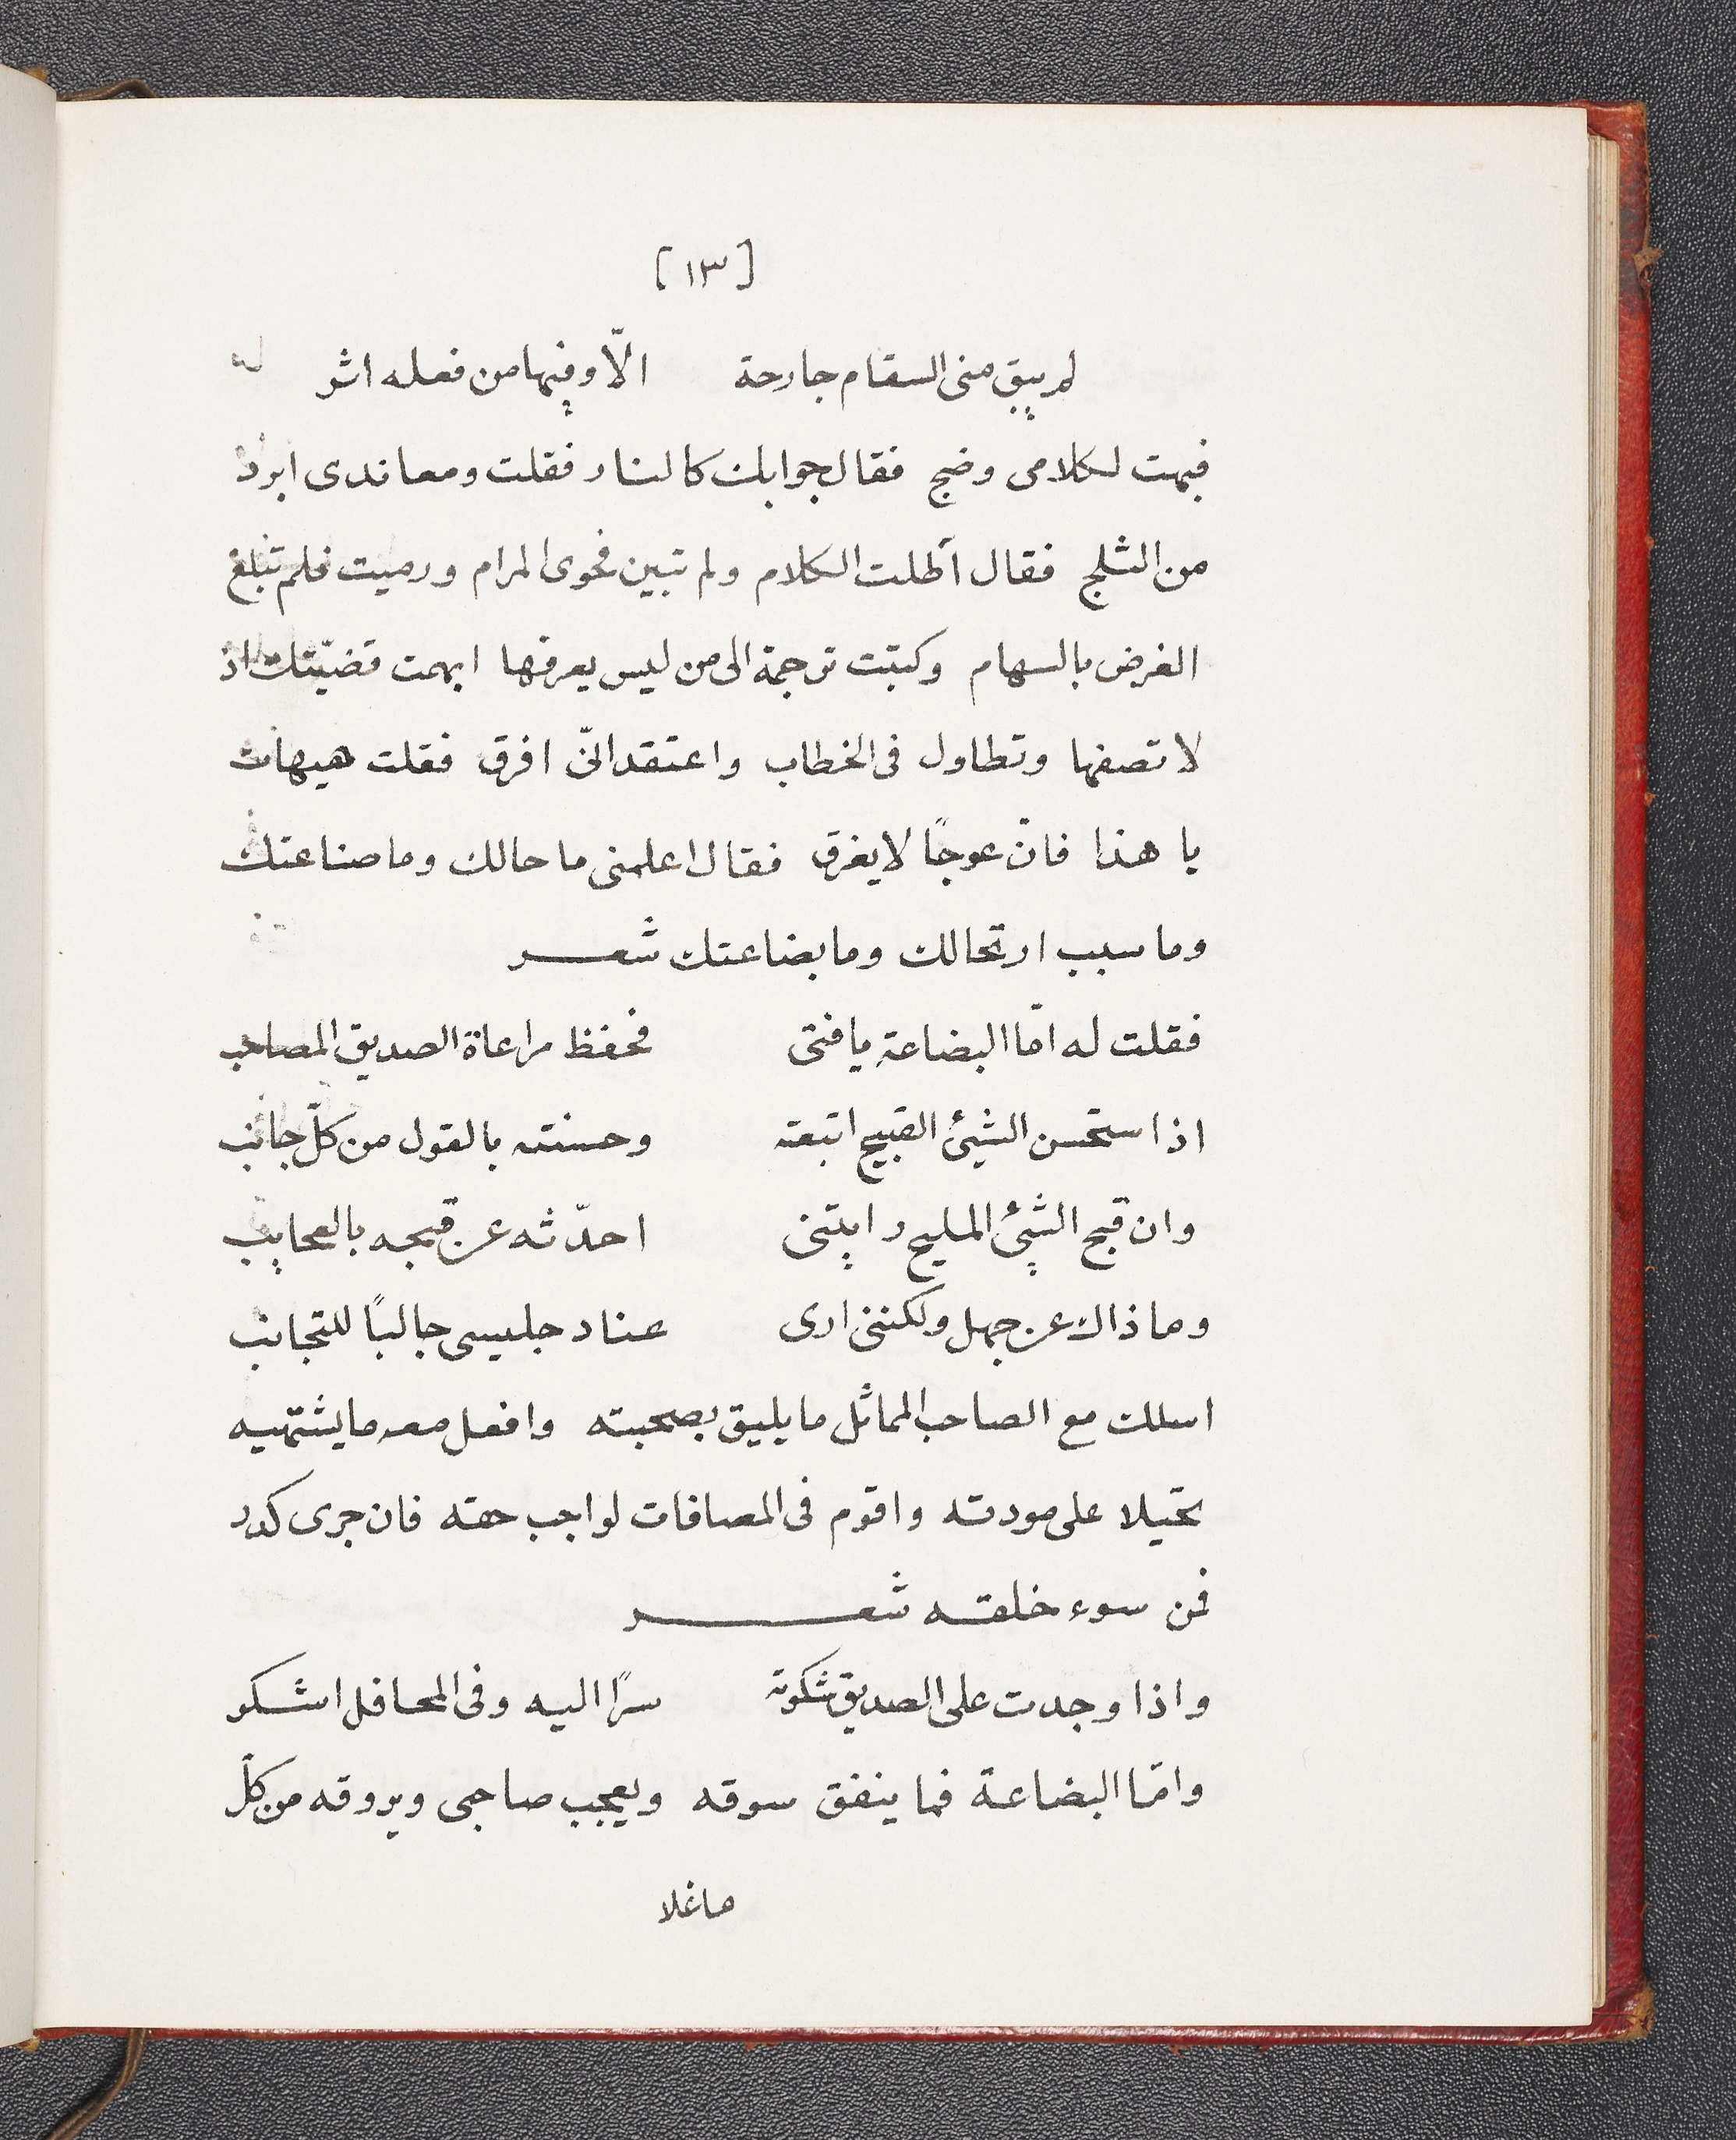 [١٣]
لم يبق منى السقام جارحة الّا وفيها من فعله اثر
فبهت لكلامى وضج فقال جوابك كالنار فقلت ومعاندى ابرد
من الثلج فقال أطلت الكلام ولم تبين فحوى المرام ورميت فلم تبلغ
الغرض بالسهام وكتبت ترجمة الى من ليس يعرفها ابهمت قضيّتك اذ
لا تصفها وتطاول فى الخطاب واعتقد انّى افرق فقلت هيهات
يا هذا فانّ عوجًا لا يغرق فقال اعلمنى ما حالك وما صناعتك
وما سبب ارتحالك وما بضاعتك شعر
فقلت له امّا البضاعة يا فتى فحفظ مراعاة الصديق المصاحب
اذا استحسن الشيئ القبيح اتبعته وحسنته بالقول من كلّ جانب
وان قبح الشيئ المليح رايتنى احدّثه عن قبحه بالعجايب
وما ذاك عن جهل ولكننى ارى عناد جليسى جالبًا للتجانب
اسلك مع الصاحب المماثل ما يليق بصحبته وافعل معه ما يشتهيه
تحيّلا على مودته واقوم فى المصافات لواجب حقه فان جرى كدر
فمن سوء خلقه شعر
واذا وجدت على الصديق شكوته سرًا اليه وفى المحافل اشكو
وامّا البضاعة فما ينفق سوقه ويعجب صاحبى ويروقه من كلّ